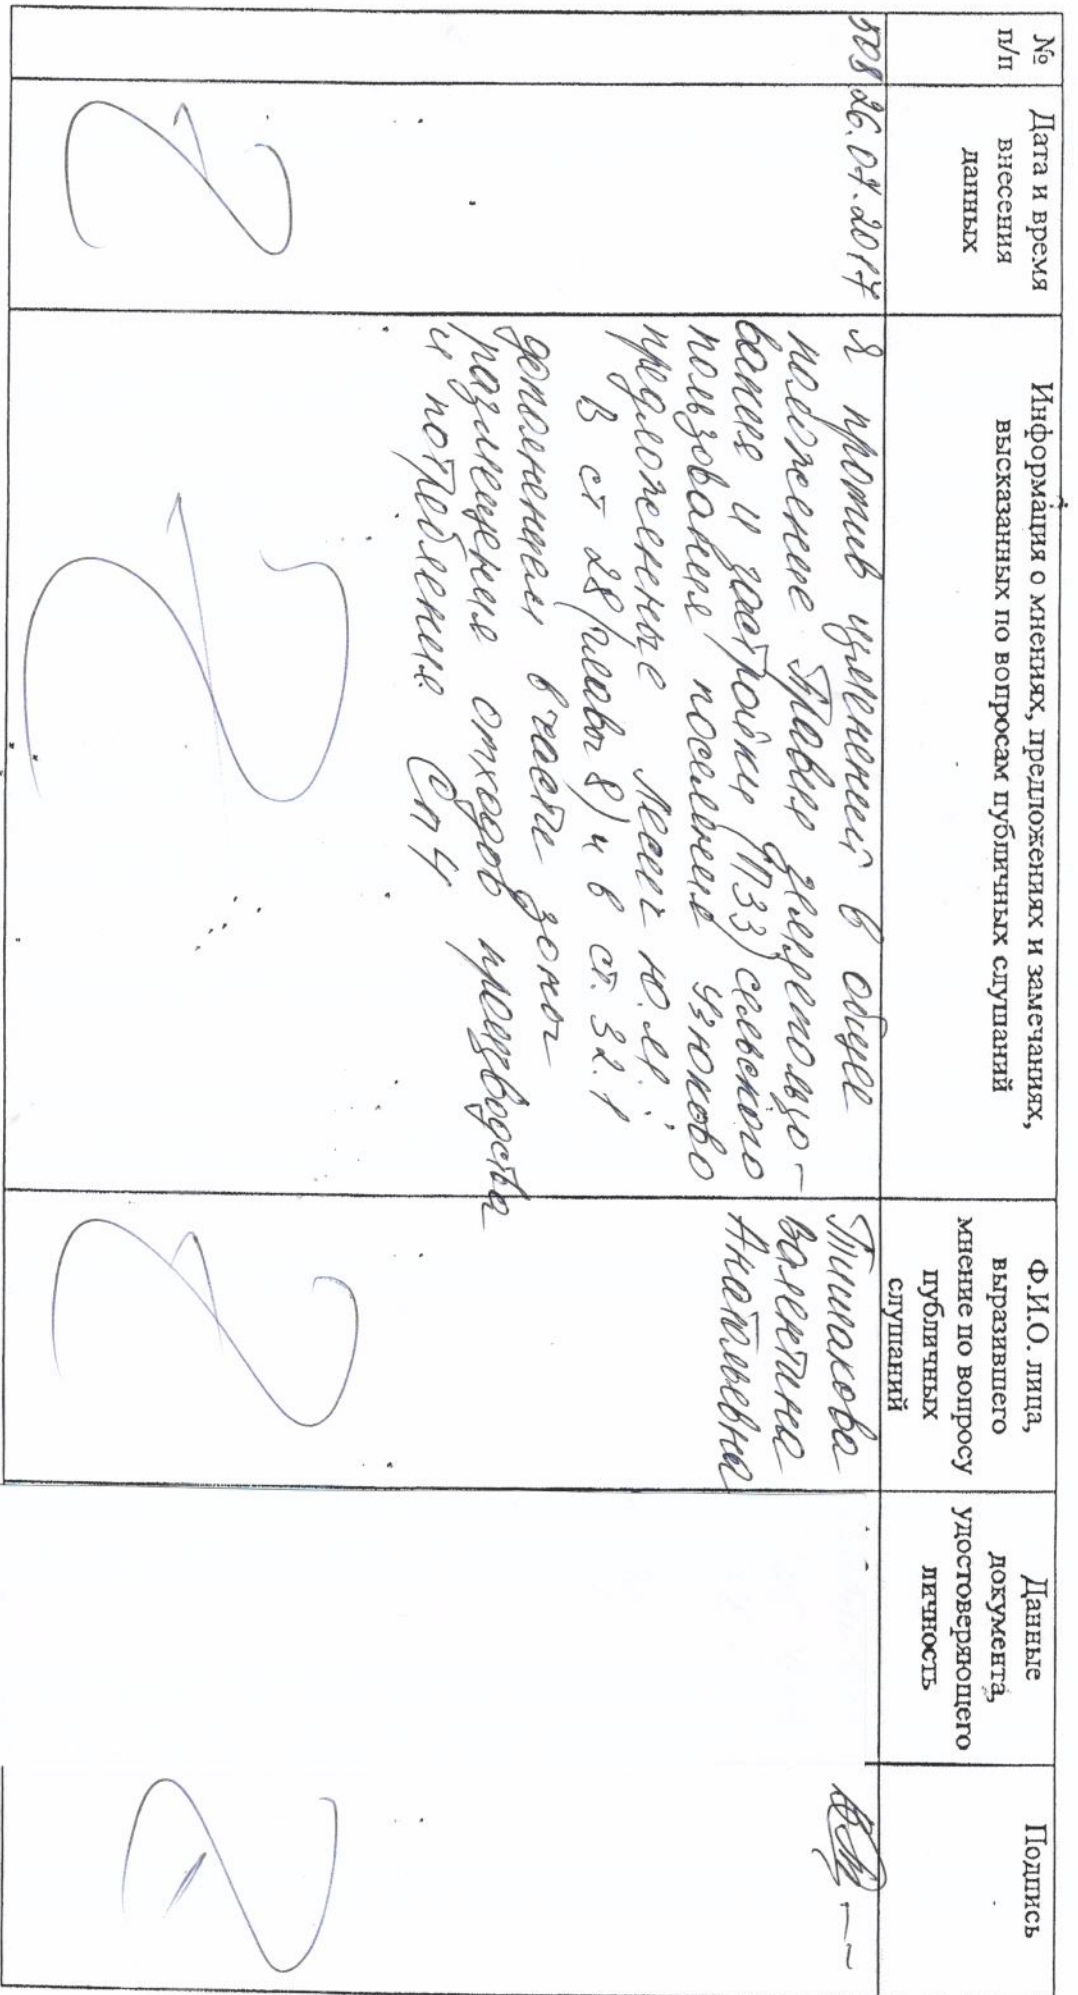 №
п/п
Дата и время
внесения
данных
Информация о мнениях, предложениях и замечаниях,
высказанных по вопросам публичных слушаний
Ф.И.О. лица,
выразившего
мнение по вопросу
публичных
слушаний
Данные
документа,
удостоверяющего
личность
Подпись
508
26.07.2017
Я против изменений в общее
положение Правил землепользо-
вания и застройки (ПЗЗ) сельского
пользования поселение Узюково
предложенные Ю.
В ст 28 (глава 8) и в ст. 32.1
дополнением в части зоны
размещения отходов производства
и потребления Сп4
Тишакова
Валентина
Анатольевна